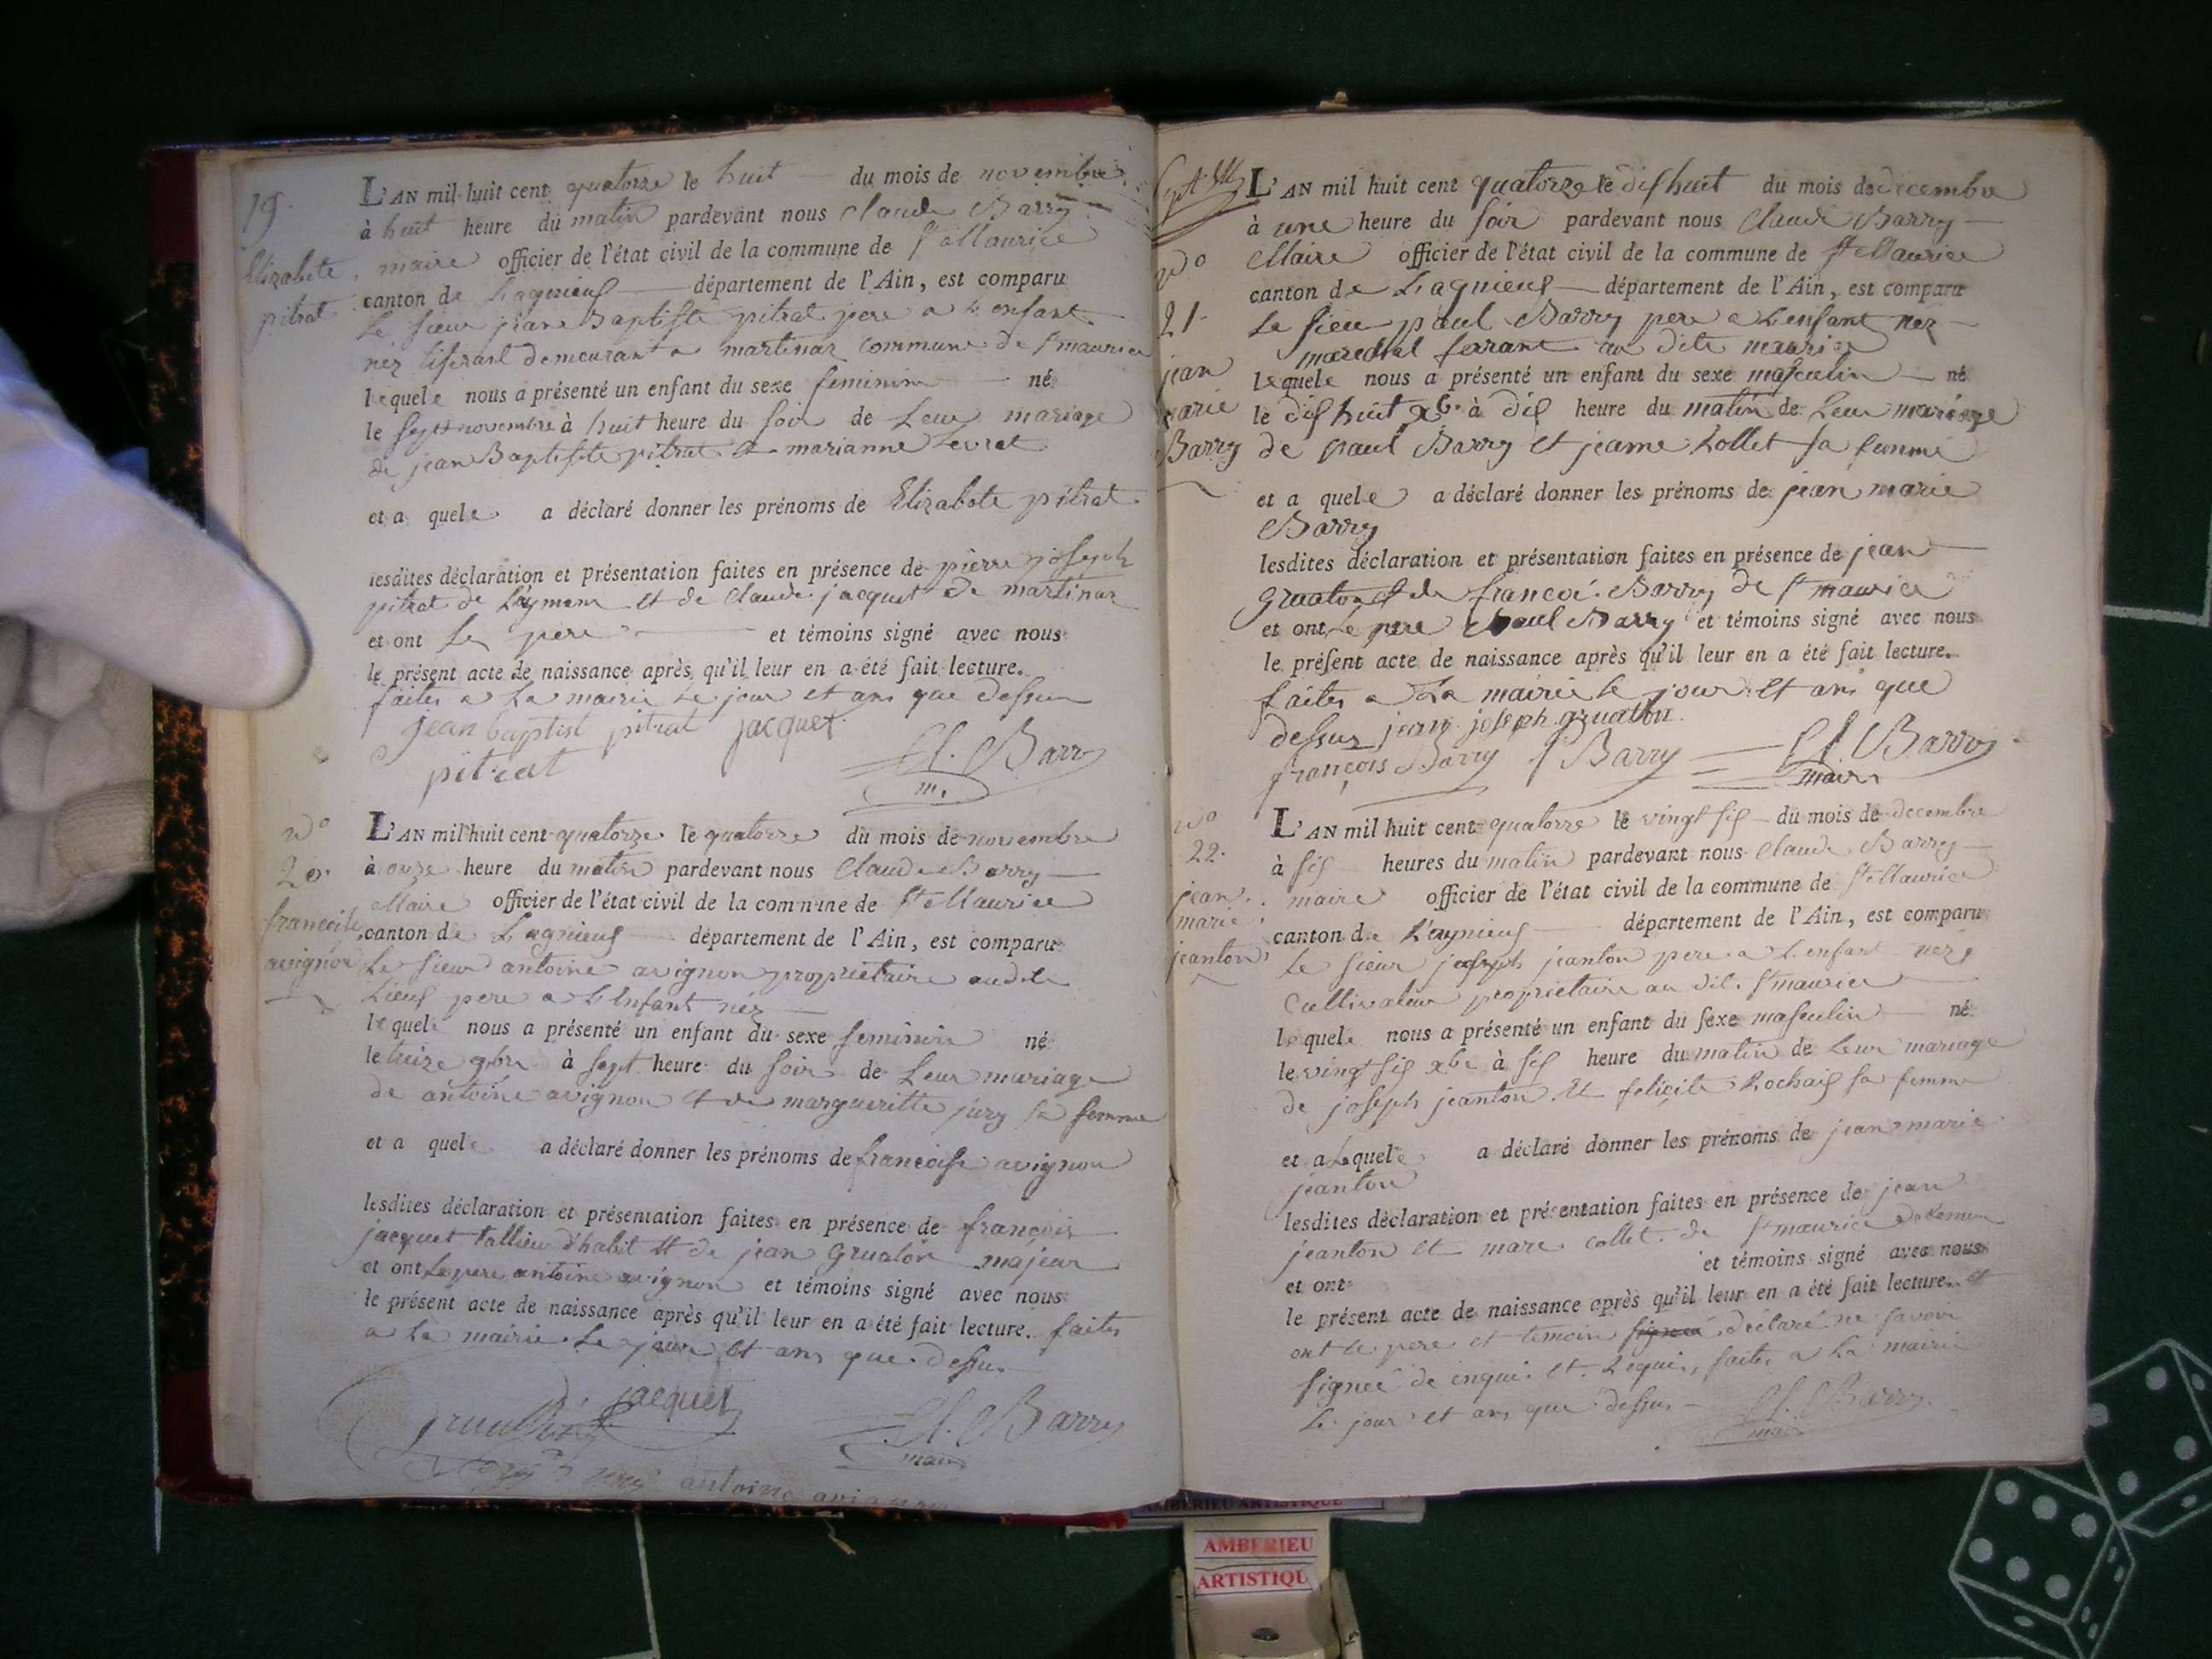 19.
Elizabete
pitrat
L'AN mil huit cent quatorze le huit du mois de novembre
à huit heure du matin pardevant nous Claude Barry
maire officier de l'état civil de la commune de St Maurice
canton de Lagnieus département de l'Ain, est comparu
Le sieur jean Baptiste pitrat pere a L'enfant
nez tiserant demeurant a martinaz commune de St maurice
lequele nous a présenté un enfant du sexe feminin né
le sept novembre à huit heure du soir de Leur mariage
de jean Baptiste pitrat et marianne Levrat
et a quele a déclaré donner les prénoms de Elizabete pitrat
lesdites déclaration et présentation faites en présence de pierre joseph
pitrat de et de Claude jacquet de martinaz
et ont Le pere et témoins signé avec nous
le présent acte de naissance après qu'il leur en a été fait lecture.
faites a La mairie Le jour et ans que dessus
jean baptist pitrat jacquet
pitrat Cl. Barry
m.
No
20.
francoise
avignon
L'AN mil huit cent quatorze le quatorze du mois de novembre
à onze heure du matin pardevant nous Claude Barry
Maire officier de l'état civil de la commune de St Maurice
canton de Lagnieus département de l'Ain, est comparu
Le sieur antoine avignon proprietaire audite
Lieus pere a L'Enfant néz
lequele nous a présenté un enfant du sexe feminin né
le treize 9bre à sept heure du soir de Leur mariage
de antoine avignon et de margueritte jury sa femme
et a quele a déclaré donner les prénoms de francoise avignon
lesdites déclaration et présentation faites en présence de françois
jacquet tallieur d'habit et de jean gruaton majeur
et ont Le pere antoine avignon et témoins signé avec nous
le présent acte de naissance après qu'il leur en a été fait lecture. faites
a La mairie Le jour et ans que dessus
jacquet
Cl. Barry
maire
antoine avignon
No
21.
jean
marie
Barry
L'AN mil huit cent quatorze le dishuit du mois de decembre
à une heure du soir pardevant nous Claude Barry
Maire officier de l'état civil de la commune de St Maurice
canton de Lagnieus département de l'Ain, est comparu
Le sieu paul Barry pere a L'enfant nez
marechal ferrant au dite maurice
lequele nous a présenté un enfant du sexe masculin né
le dishuit xb. à dis heure du matin de Leur mariage
de paul Barry et jeanne Collet sa femme
et a quele a déclaré donner les prénoms de jean marie
Barry
lesdites déclaration et présentation faites en présence de jean
gruaton et de francoi Barry de St maurice
et ont Le pere Paul Barry et témoins signé avec nous
le présent acte de naissance après qu'il leur en a été fait lecture.
faites a La mairie le jour et ans que
dessus jean joseph gruaton
françois Barry P Barry Cl. Barry
maire
No
22.
jean
marie
jeanton
L'AN mil huit cent quatorze le vingt sis du mois de decembre
à sis heures du matin pardevant nous Claude Barry
maire officier de l'état civil de la commune de St Maurice
canton de Lagnieus département de l'Ain, est comparu
Le sieur joseph jeanton pere a L'enfant néz
Cultivateur proprietaire au dit St maurice
lequele nous a présenté un enfant du sexe masculin né
le vingt sis xbe à sis heure du matin de Leur mariage
de joseph jeanton Et feliçite Rochais sa femme
et a Lequele a déclaré donner les prénoms de jean marie
jeanton
lesdites déclaration et présentation faites en présence de jean
jeanton et marc collet de St maurice
et ont et témoins signé avec nous
le présent acte de naissance après qu'il leur en a été fait lecture. et
ont le pere et temoin déclaré ne savoir
signeé de enqui et Requis, faites a La mairie
Le jour et ans que dessus Cl. Barry
maire
AMBERIEU ARTISTIQUE
AMBERIEU
ARTISTIQU